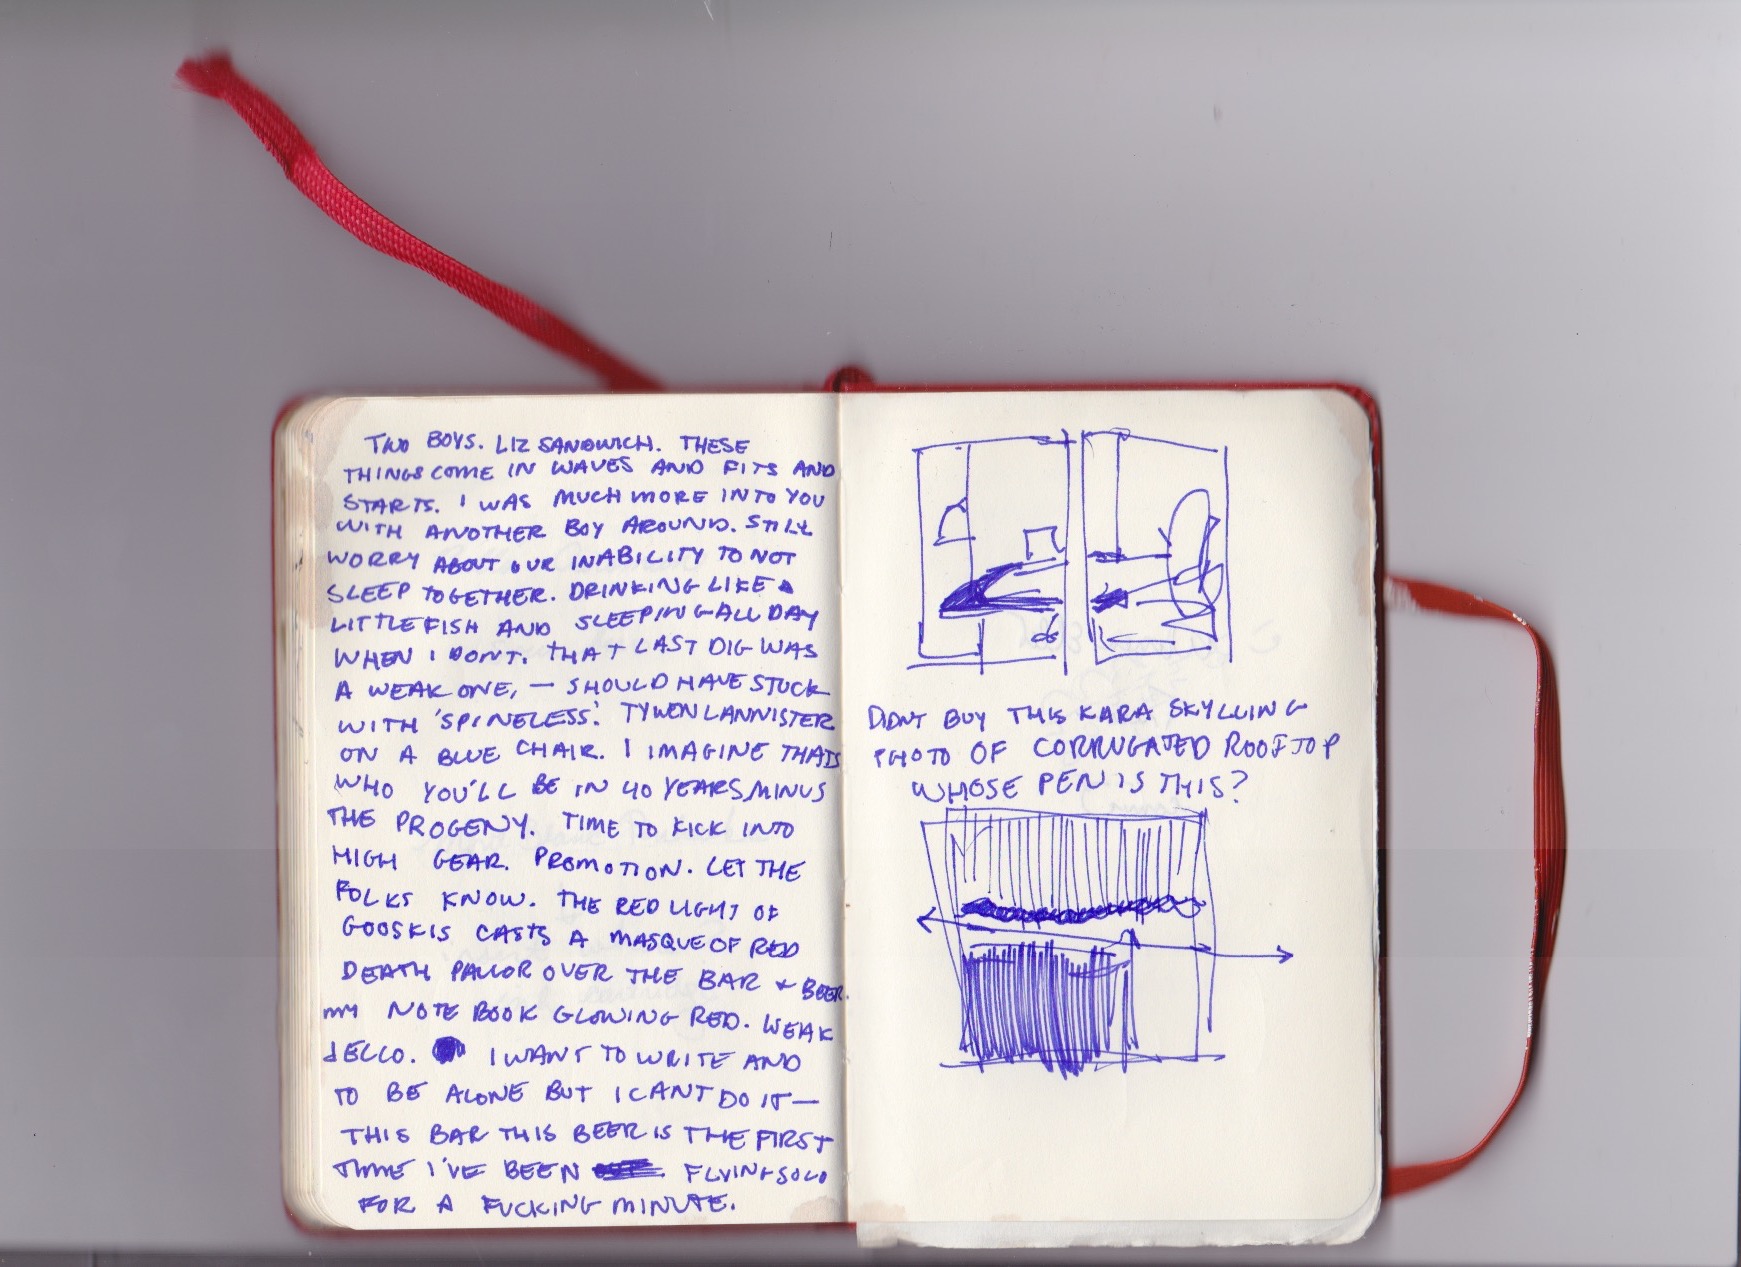 TWO BOYS. LIZ SANDWICH. THESE
THINGS COME IN WAVES AND FITS AND
STARTS. I WAS MUCH MORE INTO YOU
WITH ANOTHER BOY AROUND. STILL
WORRY ABOUT OUR INABILITY TO NOT
SLEEP TOGETHER. DRINKING LIKE A
LITTLE FISH AND SLEEPING ALL DAY
WHEN I DON'T. THAT LAST DIG WAS
A WEAK ONE, — SHOULD HAVE STUCK
WITH 'SPINELESS'. TYWON LANNISTER
ON A BLUE CHAIR. I IMAGINE THATS
WHO YOU'LL BE IN 40 YEARS, MINUS
THE PROGENY. TIME TO KICK INTO
HIGH GEAR. PROMOTION. LET THE
FOLKS KNOW. THE RED LIGHT OF
GOOSKIS CASTS A MASQUE OF RED
DEATH PALLOR OVER THE BAR + BEER.
MY NOTE BOOK GLOWING RED. WEAK
JELLO. I WANT TO WRITE AND
TO BE ALONE BUT I CANT DO IT —
THIS BAR THIS BEER IS THE FIRST
TIME I'VE BEEN FLYING SOLO
FOR A FUCKING MINUTE.
DIDNT BUY THIS KARA SKYLLING
PHOTO OF CORRUGATED ROOFTOP
WHOSE PEN IS THIS?